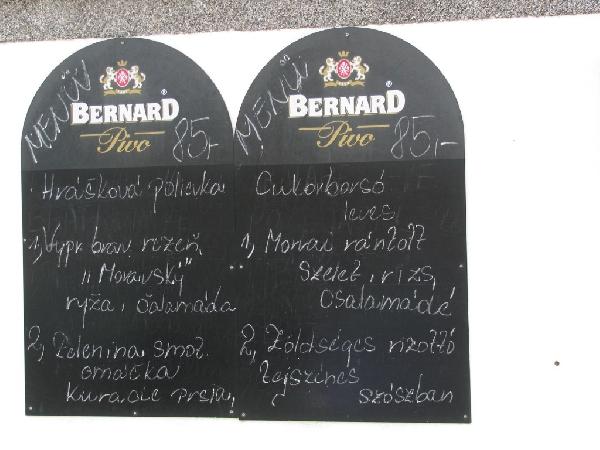 MENÜ
BERNARD
Pivo
85,-
Hrášková polievka
1, Vypr. brav. rezeň
"Moravský"
ryža, čalamáda
2, Zelenina. smot.
omáčka
kuracie prsia,
MENÜ
BERNARD
Pivo
85,-
Cukorborsó
leves
1, Morvai rántott
szelet, rizs,
csalamádé
2, Zöldséges rizottó
tejszínes
szószban